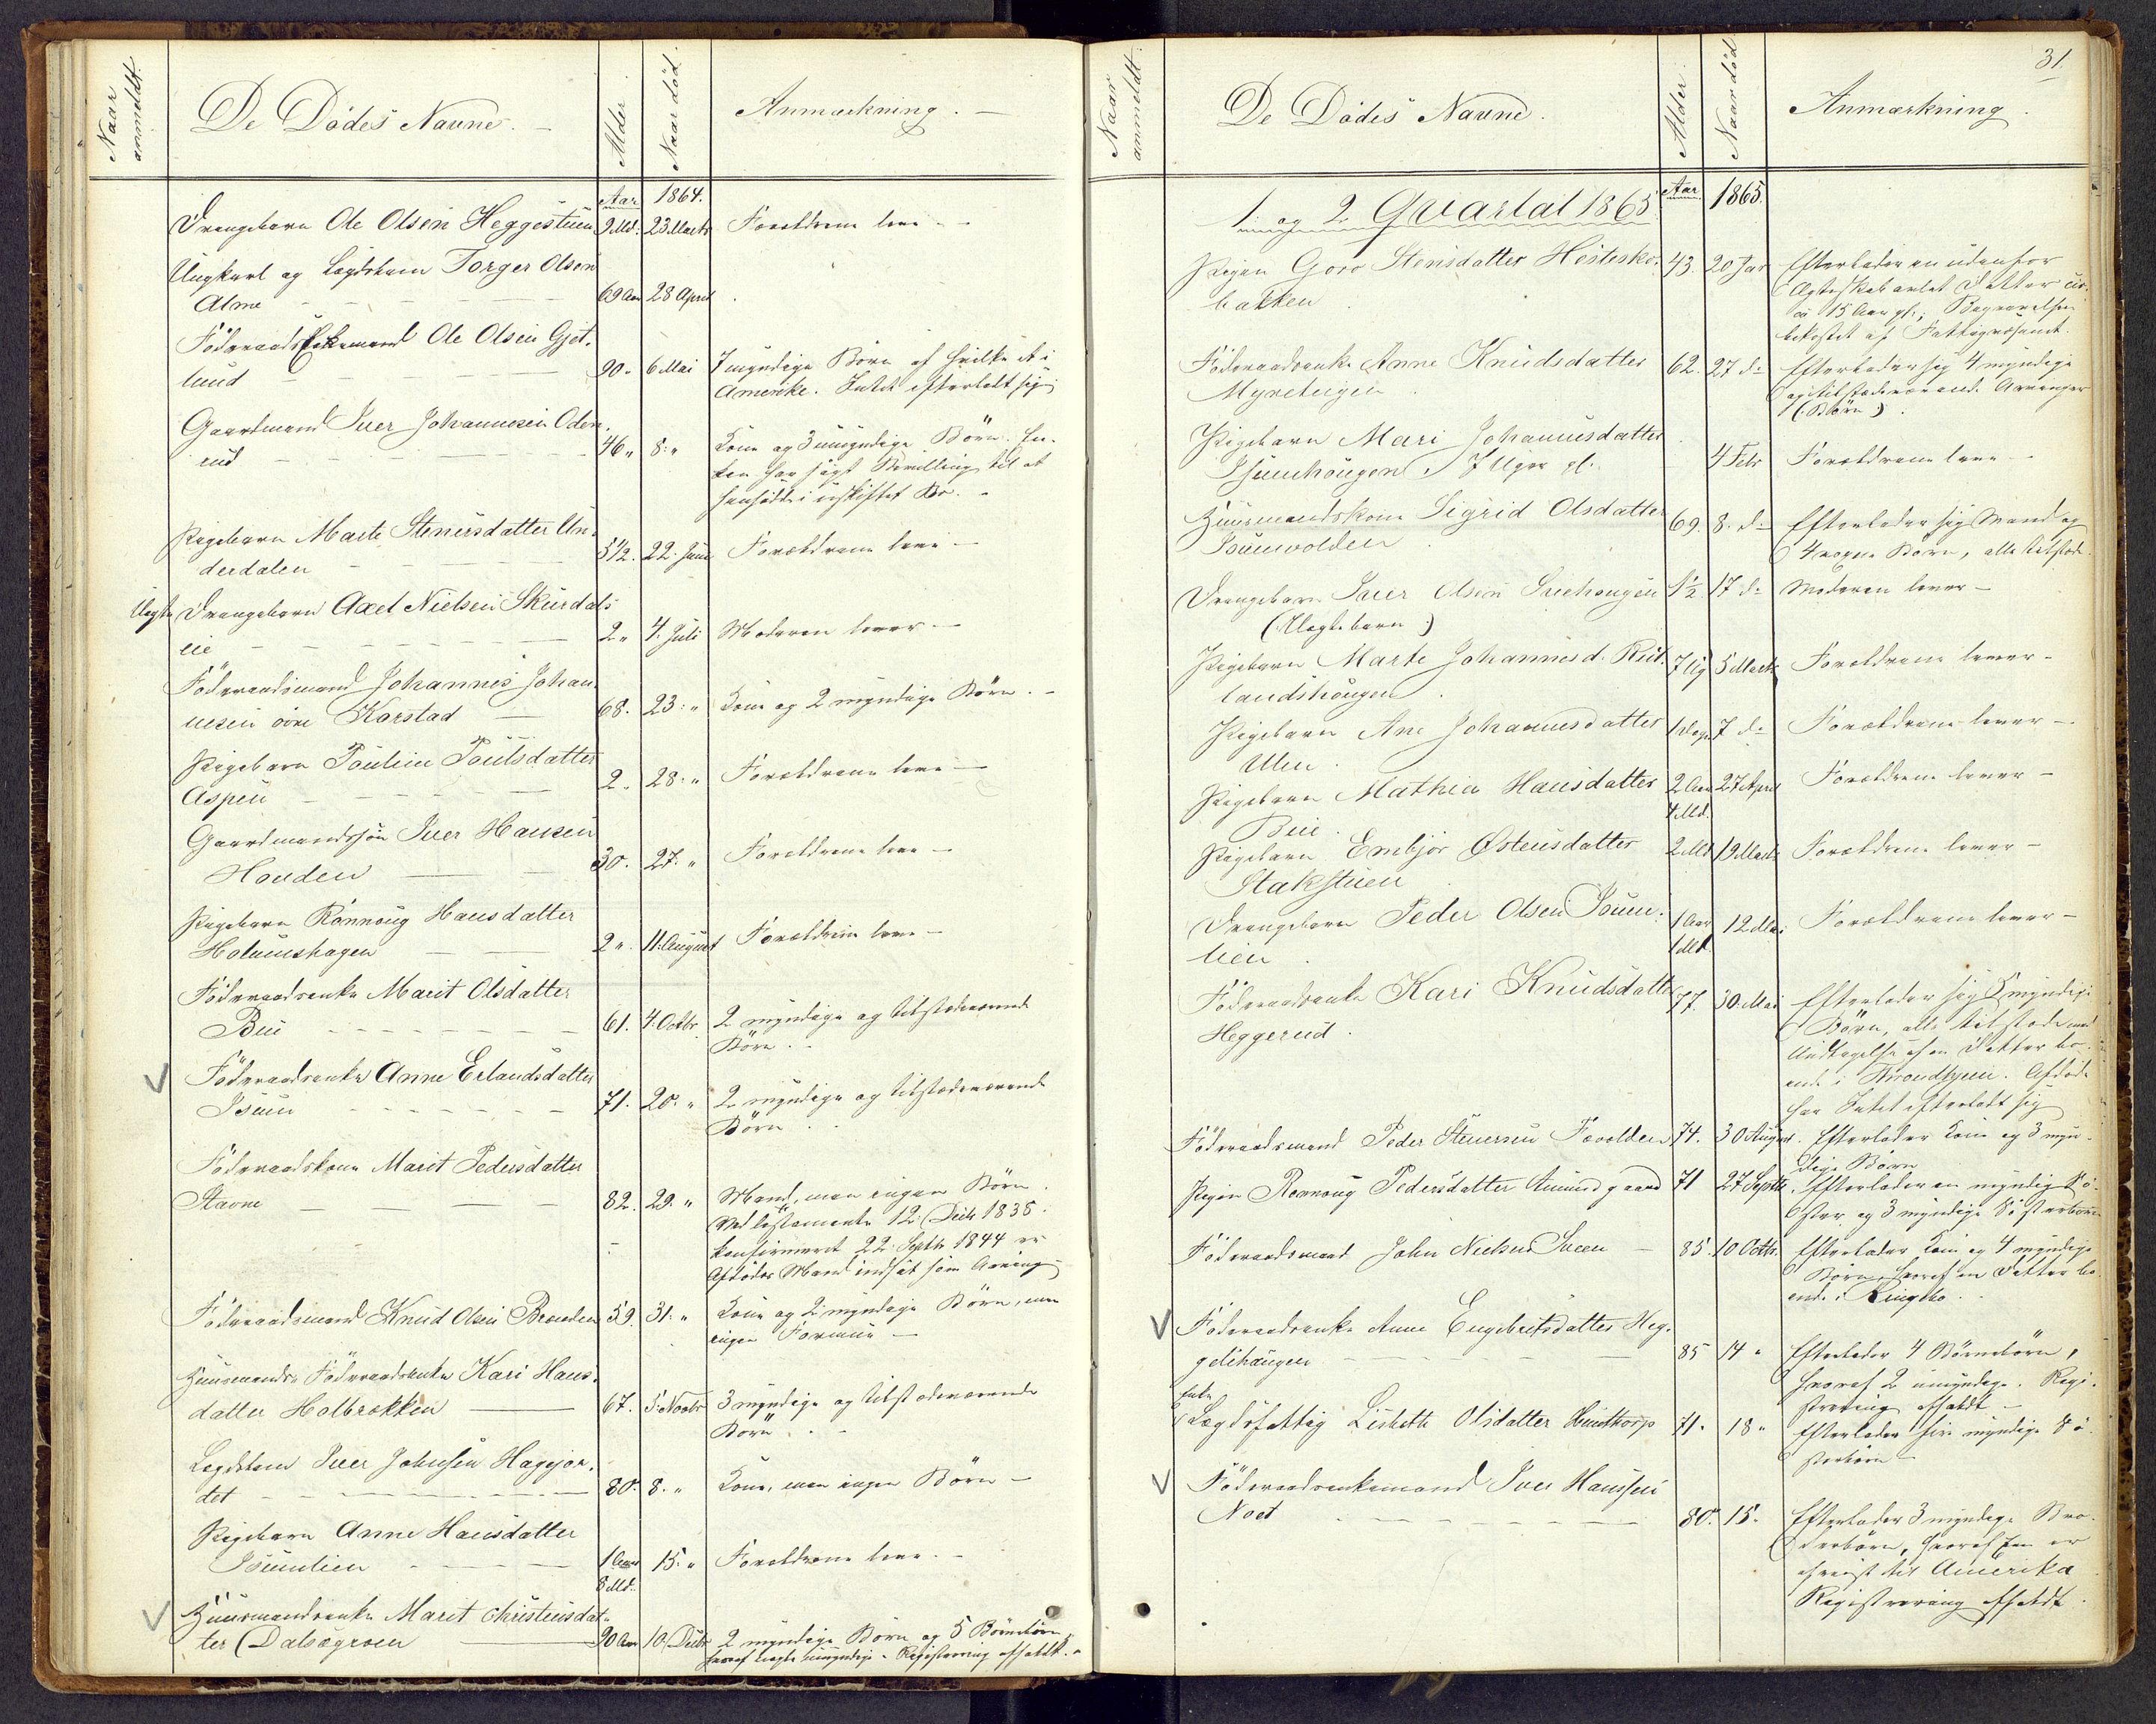 Naar anmeldt.
De Dödes Navne. -
Alder
Naar död.
Anmærkning. -
Aar 1864.
Drengebarn Ole Olsen Heggestuen 9 Md. 23 Marts Forældrene leve -
Ungkarl og Lægdslem Torger Olsen
Alme 69 Aar 28 April
Föderaads Enkemand Ole Olsen Gjet-
lund 90 " 6 Mai 7 myndige Börn af hvilke et i
Amerika. Intet efterladt sig
Gaardmand Iver Johannesen Oden-
rud 46 " 8 " Kone og 3 umyndige Börn. En-
ken har sögt Bevilling til at
hensidde i uskiftet Bo. -
Pigebarn Marte Stenersdatter Un-
derdalen 5 1/2. 22. Juni Forældrene leve -
Uægte Drengebarn Axel Nielsen Skurdals
eie 2 " 4. Juli Moderen lever -
Föderaadsmand Johannes Johan-
nesen övre Korstad 68. 23 " Kone og 2 myndige Börn. -
Pigebarn Pouline Poulsdatter
Aspen 2 " 28 " Forældrene leve -
Gaardmandssön Iver Hansen
Houden 30. 27. " Forældrene leve -
Pigebarn Rönnoug Hansdatter
Holumshagen 2 " 11. August Forældrene leve -
Föderaadsenke Marit Olsdatter
Bue 61. 4. Octbr 2 myndige og tilstedeværende
Börn. -
Föderaadsenke Anne Erlandsdatter
Isum 71. 20. " 2 myndige og tilstedeværende
Börn.
Föderaadskone Marit Pedersdatter
Stavne 82. 29. " Mand, men ingen Börn.
Ved Testamente 12. Decbr 1835.
konfirmeret 22. Septbr 1844 er
Afdödes Mand indsat som Arving
Föderaadsmand Knud Olsen Brænden 59. 31. " Kone og 2 myndige Börn, men
ingen Formue -
Huusmands Föderaadsenke Kari Hans-
datter Holbrækken 67. 5. Novbr 3 myndige og tilstedeværende
Börn. -
Lægdslem Iver Johnsen Hagejor-
det 80. 8. " Kone, men ingen Börn -
Pigebarn Anne Hansdatter
Isumlien 1 Aar 8 Md. 15. " Forældrene leve. -
Huusmandsenke Marit Christensdat-
ter Dalsegroen 90 Aar 10 Decbr 2 myndige Börn og 5 Börnebörn
hvoraf nogle umyndige. Registrering affaldt. -
31.
Naar anmeldt.
De Dödes Navne.
Alder.
Naar död.
Anmærkning.
1 og 2 Qvartal 1865 Aar 1865.
Pigen Goro Stensdatter Hestesko- 43. 20 Jan Efterlader en udenfor
bakken Ægteskab avlet Datter cir-
ca 15 Aar gl., Begravelsen
bekostet af Fattigvæsenet.
Föderaadsenke Anne Knudsdatter 62. 27 d. Efterlader sig 4 myndige
Myreteigen og tilstedeværende Arvinger
(Börn).
Pigebarn Mari Johannesdatter
Isumhougen, 7 Uger gl. 4 Febr Forældrene leve -
Huusmandskone Sigrid Olsdatter 69. 8. d. Efterlader sig Mand og
Isumvolden 4 voxne Börn, alle tilstede.
Drengebarn Iver Olsen Suehougen 1 1/2 17 d. Moderen lever -
(Uægtebarn)
Pigebarn Marte Johannesd. Rud- 7 Ug 5 Marts Forældrene lever -
landshougen.
Pigebarn Ane Johannesdatter 1 Dag 7 d. Forældrene lever -
Ulen.
Pigebarn Mathea Hansdatter 2 Aar 4 Md. 27 April Forældrene lever -
Bue.
Pigebarn Embjör Østensdatter 2 Md 19 Marts Forældrene lever -
Stakstuen
Drengebarn Peder Olsen Isum- 1 Aar 1 Md. 12 Mai Forældrene lever -
lien.
Föderaadsenke Kari Knudsdatter 77. 30. Mai Efterlader sig 5 myndige
Heggerud. Börn, alle tilstede med
Undtagelse af en Datter bo-
ende i Throndhjem. Afdöde
har Intet efterladt sig
Föderaadsmand Peder Stenersen Tovolden 74. 30 August. Efterlader Kone og 3 myn-
dige Börn
Pigen Ronnoug Pedersdatter Amundgaard 71 27 Septbr. Efterlader en myndig Sö-
ster og 3 myndige Sösterbörn
Föderaadsmand John Nielsen Sveen - 85. 10 Octbr. Efterlader Kone og 4 myndige
Börn, hvoraf en Datter bo-
ende i Ringebo.
Föderaadsenke Anne Engebretsdatter Heg-
gelihaugen 85 14 " Efterlader 4 Börnebörn,
hvoraf 2 umyndige. Regi-
strering affaldt -
Enke
Lægdsfattig Lisbeth Olsdatter Hundtorp 71. 18 " Efterlader sin myndige Sö-
sterbörn -
Föderaadsenkemand Iver Hanssen
Noet 80. 15. Efterlader 3 myndige Bro-
derbörn, hvoraf Een er
afreist til Amerika
Registrering affaldt.